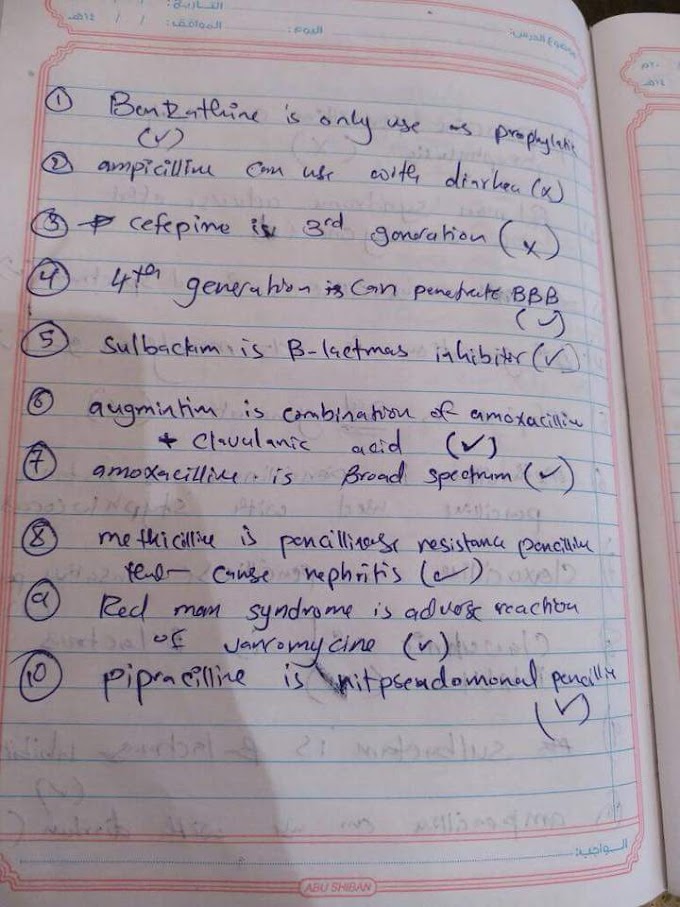 التاريخ: / /
اليوم: الموافق: / / ١٤هـ
موضوع الدرس:
① Benzathine is only use as prophylatic
(✓)
② ampicilline can use with diarhea (x)
③ cefepime is 3rd generation (x)
④ 4th generation is can penetrate BBB
(✓)
⑤ sulbactam is B-lactmas inhibiter (✓)
⑥ augmintim is combination of amoxacilline
+ clavulanic acid (✓)
⑦ amoxacilline is Broad spectrum (✓)
⑧ methicilline is pencillinase resistance pencilline
cause nephritis (✓)
⑨ Red man syndrome is adverse reaction
of vancomycine (✓)
⑩ pipracilline is antipseudomonal pencilline
(✓)
الواجب:
ABU SHIBAN